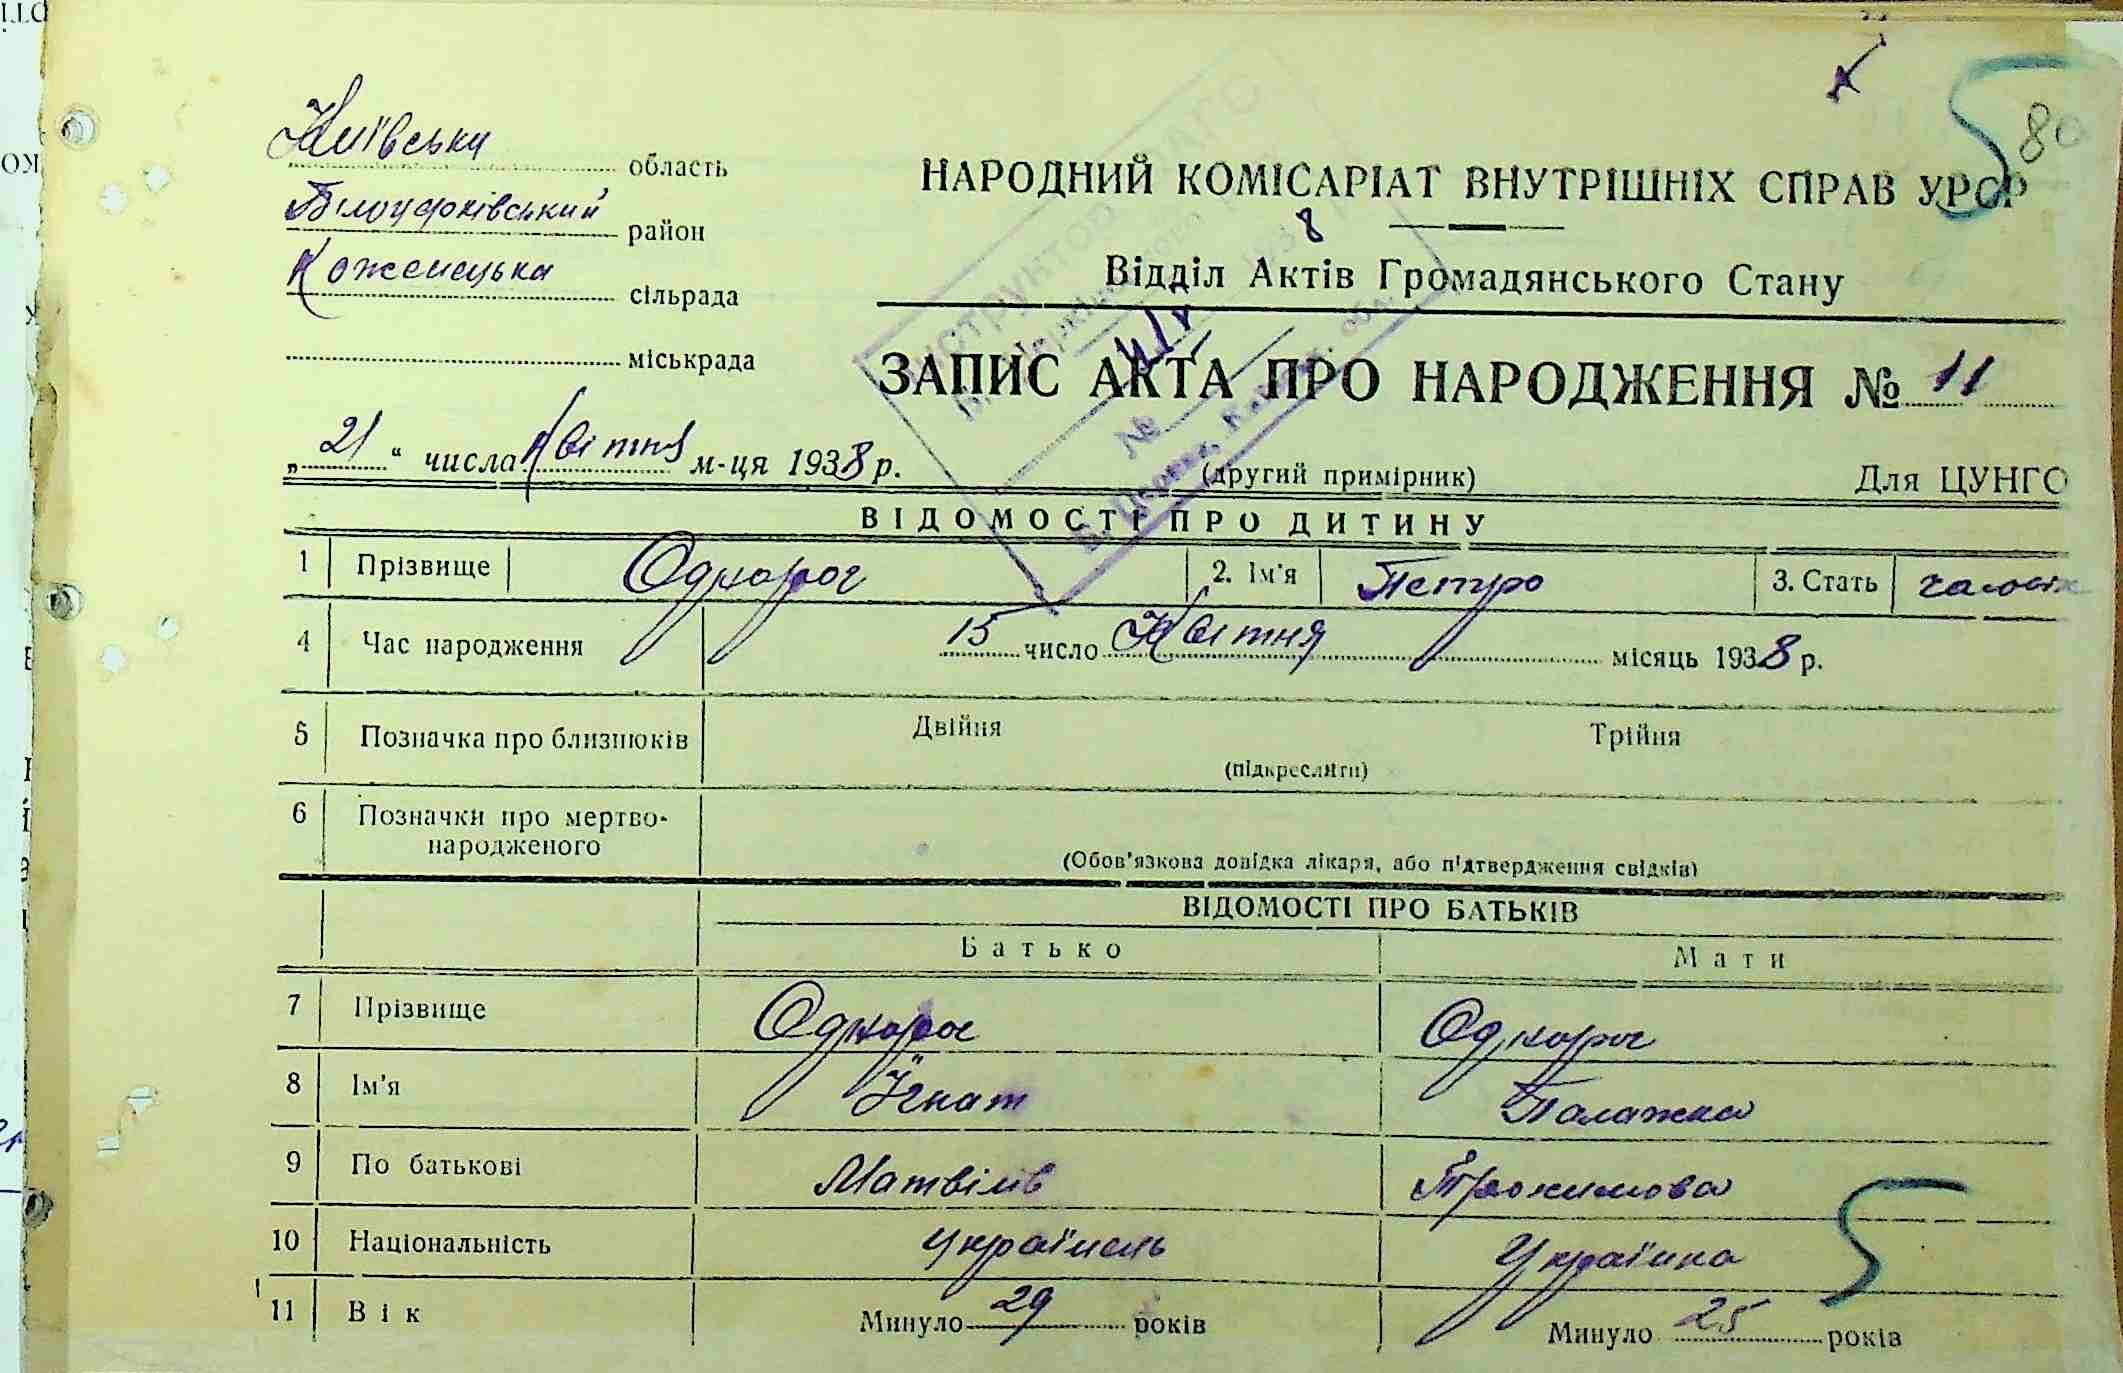 Київська область
Білоцерківський район
Коженецька сільрада
міськрада
80
НАРОДНИЙ КОМІСАРІАТ ВНУТРІШНІХ СПРАВ УРСР
8
Відділ Актів Громадянського Стану
ЗАПИС АКТА ПРО НАРОДЖЕННЯ № 11
„21“ числа Квітня м-ця 1938 р.
(другий примірник)
Для ЦУНГО
ВІДОМОСТІ ПРО ДИТИНУ
1 Прізвище Однорог 2. Ім'я Петро 3. Стать
4 Час народження 15 число Квітня місяць 1938 р.
5 Позначка про близнюків Двійня Трійня
(підкреслити)
6 Позначки про мертво-
народженого
(Обов'язкова довідка лікаря, або підтвердження свідків)
ВІДОМОСТІ ПРО БАТЬКІВ
Батько Мати
7 Прізвище Однорог Однорог
8 Ім'я Ігнат Палажка
9 По батькові Матвіїв Трохимова
10 Національність українець Українка
11 Вік Минуло 29 років Минуло 25 років
5